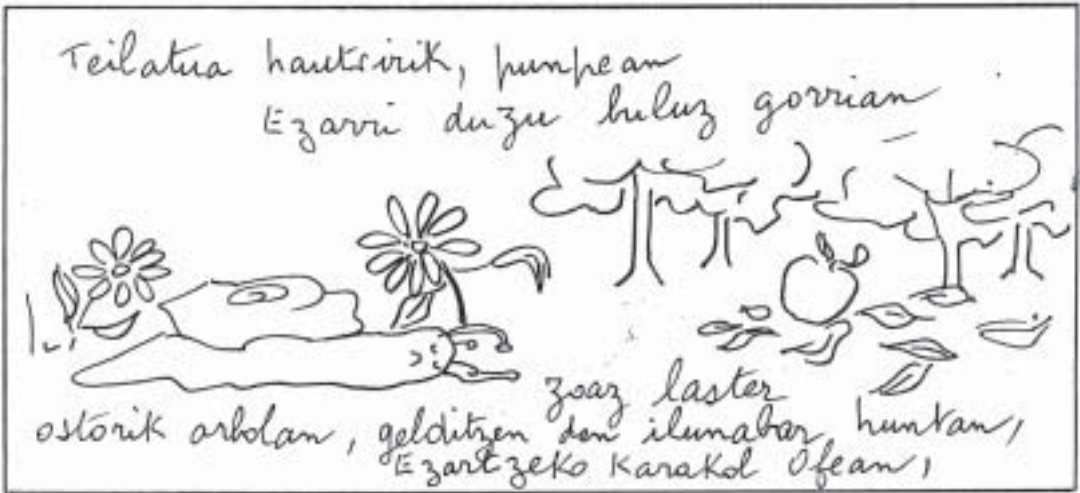 Teilatua hautsirik, punpean
Ezarri duzu buluz gorrian
zoaz laster
ostorik arbolan, gelditzen den ilunabar huntan,
Ezartzeko Karakol Ofean,